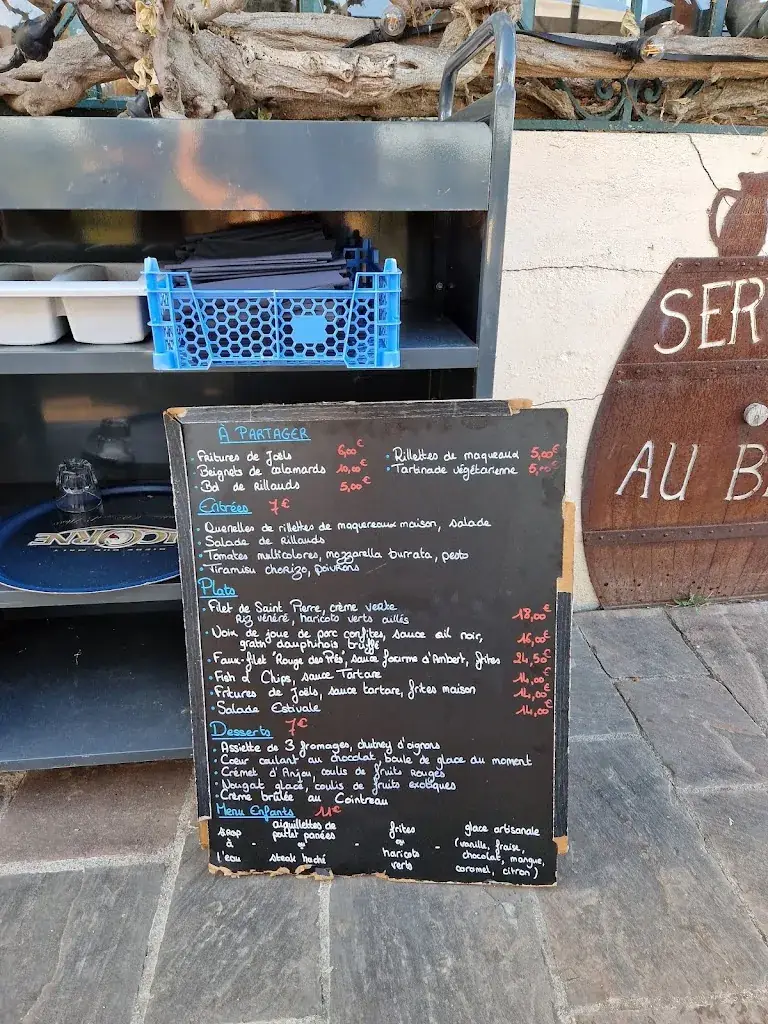 À PARTAGER
• Fritures de Joëls 6,00€
• Rillettes de maqueraux 5,00€
• Beignets de calamards 10,00€
• Tartinade végétarienne 5,00€
• Bol de Rillauds 5,00€
Entrées 7€
• Quenelles de rillettes de maquereaux maison, salade
• Salade de Rillauds
• Tomates multicolores, mozzarella burrata, pesto
• Tiramisu chorizo, poivrons
Plats
• Filet de Saint Pierre, crème verte
Riz vénéré, haricots verts aillés 18,00€
• Noix de joue de porc confites, sauce ail noir,
gratin dauphinois truffé 16,00€
• Faux-filet "Rouge des Prés", sauce fourme d'Ambert, frites 24,50€
• Fish & Chips, sauce Tartare 14,00€
• Fritures de Joëls, sauce tartare, frites maison 14,00€
• Salade Estivale 14,00€
Desserts 7€
• Assiette de 3 fromages, chutney d'oignons
• Coeur coulant au chocolat, boule de glace du moment
• Crémet d'Anjou, coulis de fruits Rouges
• Nougat glacé, coulis de fruits exotiques
• Crème brûlée au Cointreau
Menu Enfants 11€
sirop à l'eau - aiguillettes de poulet panées ou steak haché - frites ou haricots verts - glace artisanale (vanille, fraise, chocolat, mangue, caramel, citron)
SER
AU B